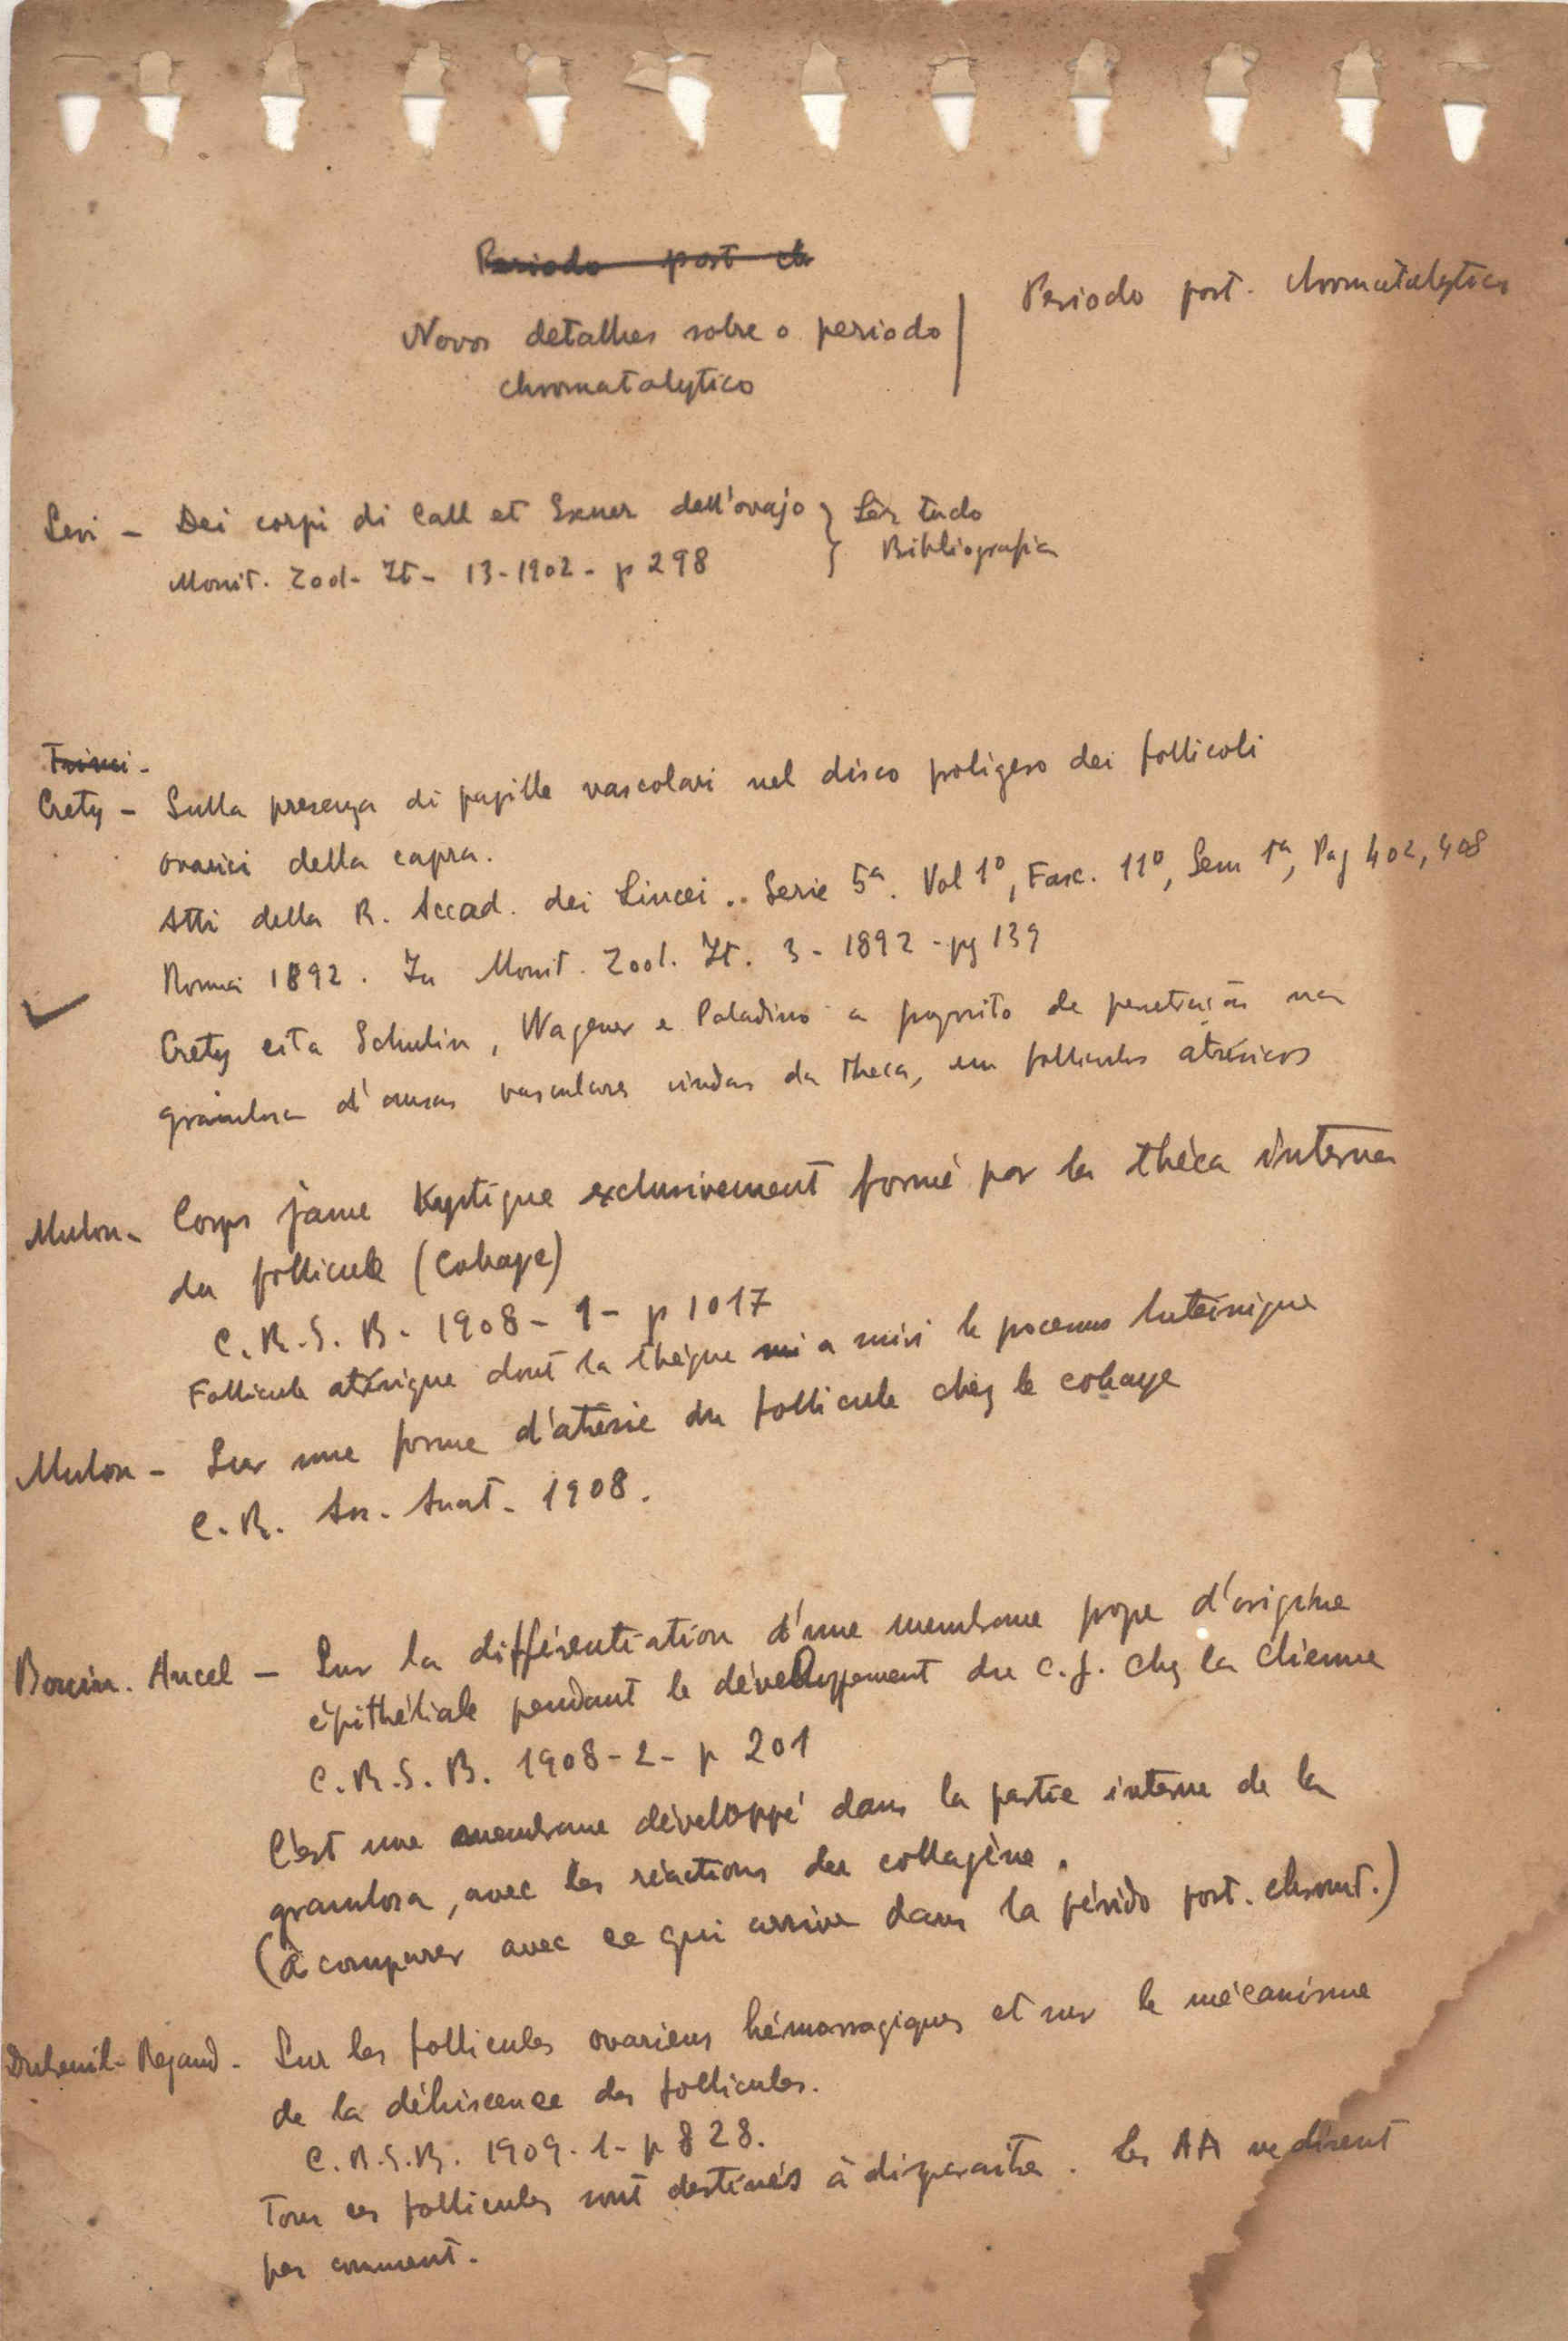 Periodo post ch
Novos detalhes sobre o periodo
chromatolytico
Periodo post. chromatolytico
Levi - Dei corpi di Call et Exner dell'ovajo
Monit. Zool. It - 13 - 1902 - p 298
Lêr tudo
Bibliografia
Crety - Sulla presenza di papille vascolari nel disco proligero dei follicoli
ovarici della capra.
Atti della R. Accad. dei Lincei.. Serie 5ª. Vol 1º, Fasc. 11º, Sem 1ª, Pag 402, 408
Roma 1892. In Monit. Zool. It. 3 - 1892 - pg 139
Crety cita Schulin, Wagener e Paladino a proposito de penetração na
granulosa d'ansas vasculares vindas da theca, em folliculos atrésicos
Mulon - Corps jaune Kystique exclusivement formé par la théca interna
du follicule (Cobaye)
C. R. S. B. 1908 - 1 - p 1017
Follicule atrésique dont la thèque a suivi le processus lutéinique
Mulon - Sur une forme d'atrésie du follicule chez le cobaye
C. R. Ass. Anat. 1908.
Bouin. Ancel - Sur la différentiation d'une membrane propre d'origine
épithéliale pendant le développement du c. j. chez la chienne
C. R. S. B. 1908 - 2 - p 201
C'est une membrane développé dans la partie interne de la
granulosa, avec les réactions du collagène.
(à comparer avec ce qui arrive dans la pérido post. chromt.)
Dubreuil - Regaud - Sur les follicules ovariens hémorragiques et sur le mécanisme
de la déhiscence des follicules.
C. R. S. B. 1909 - 1 - p 828.
Tous ces follicules sont destinés à disparaitre. Les AA ne disent
pas comment.